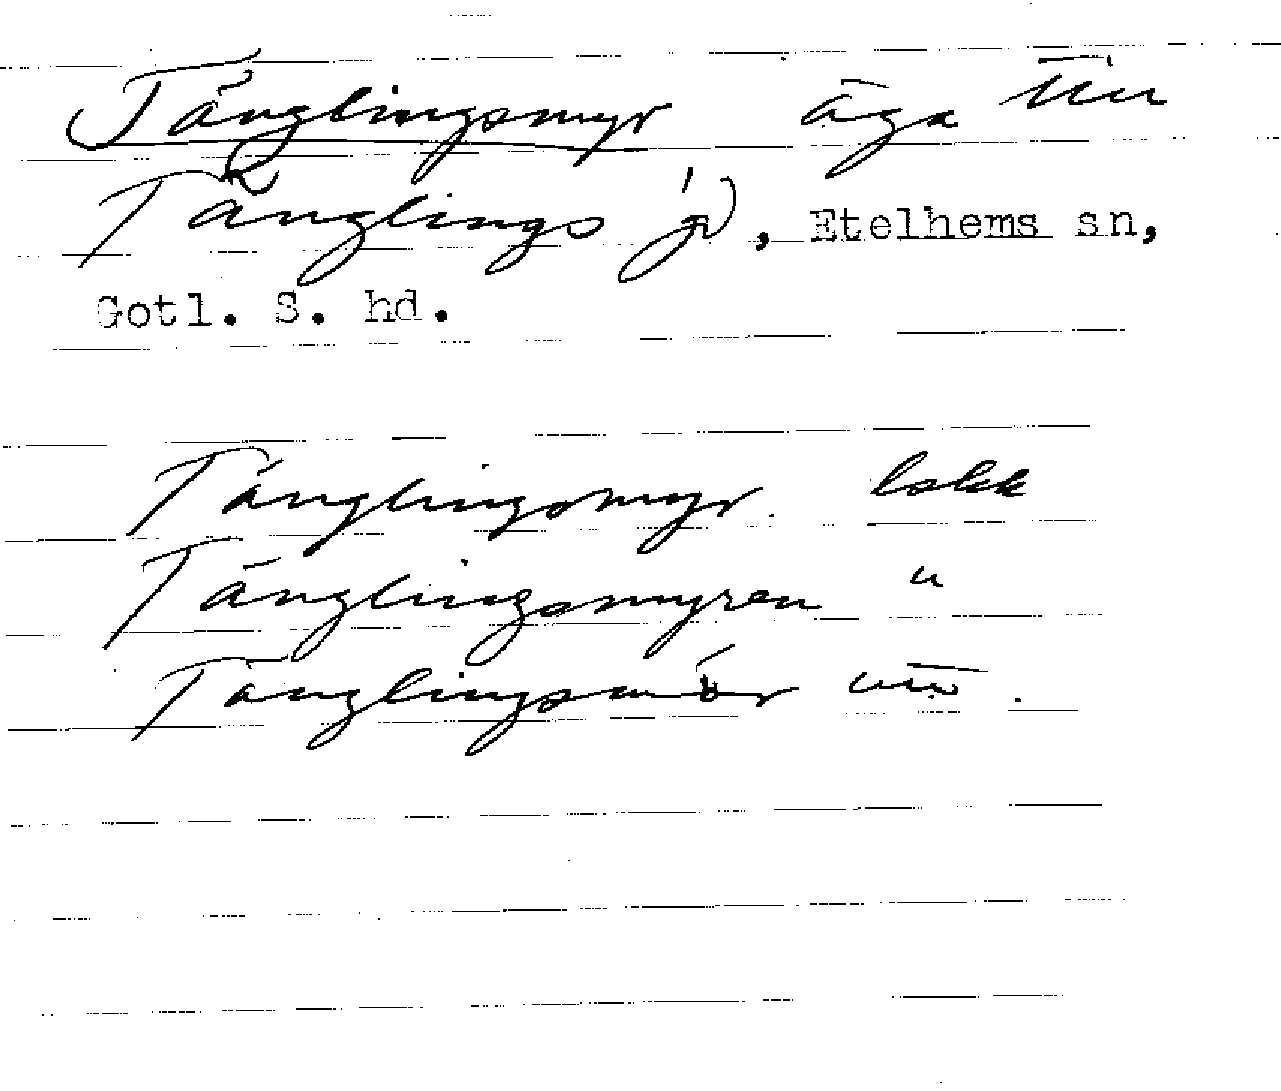 Tänglingsmyr äga till
Tänglings gd, Etelhems sn,
Gotl. S. hd.
Tänglingsmyr. lokk
Tänglingsmyren "
Tänglingsmör